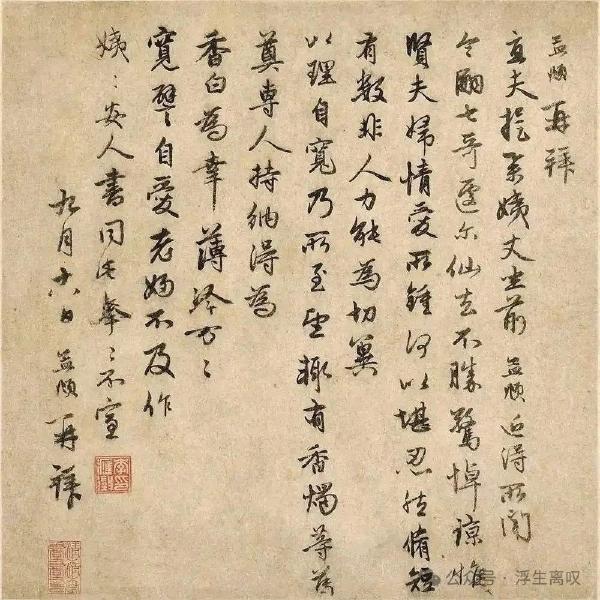 孟頫再拜
直夫提舉姨丈坐前 孟頫近得所聞
令嗣七哥遽尔仙去不勝驚悼諒惟
賢夫婦情愛所鍾何以堪忍然脩短
有數非人力能為切冀
以理自寬乃所至望輒有香燭等為
奠專人持納得為
香白為幸 薄冷万〻
寬譬自愛老婦不及作
姨〻安人書同此拳〻不宣
九月十六日 孟頫再拜
公众号·浮生离叹